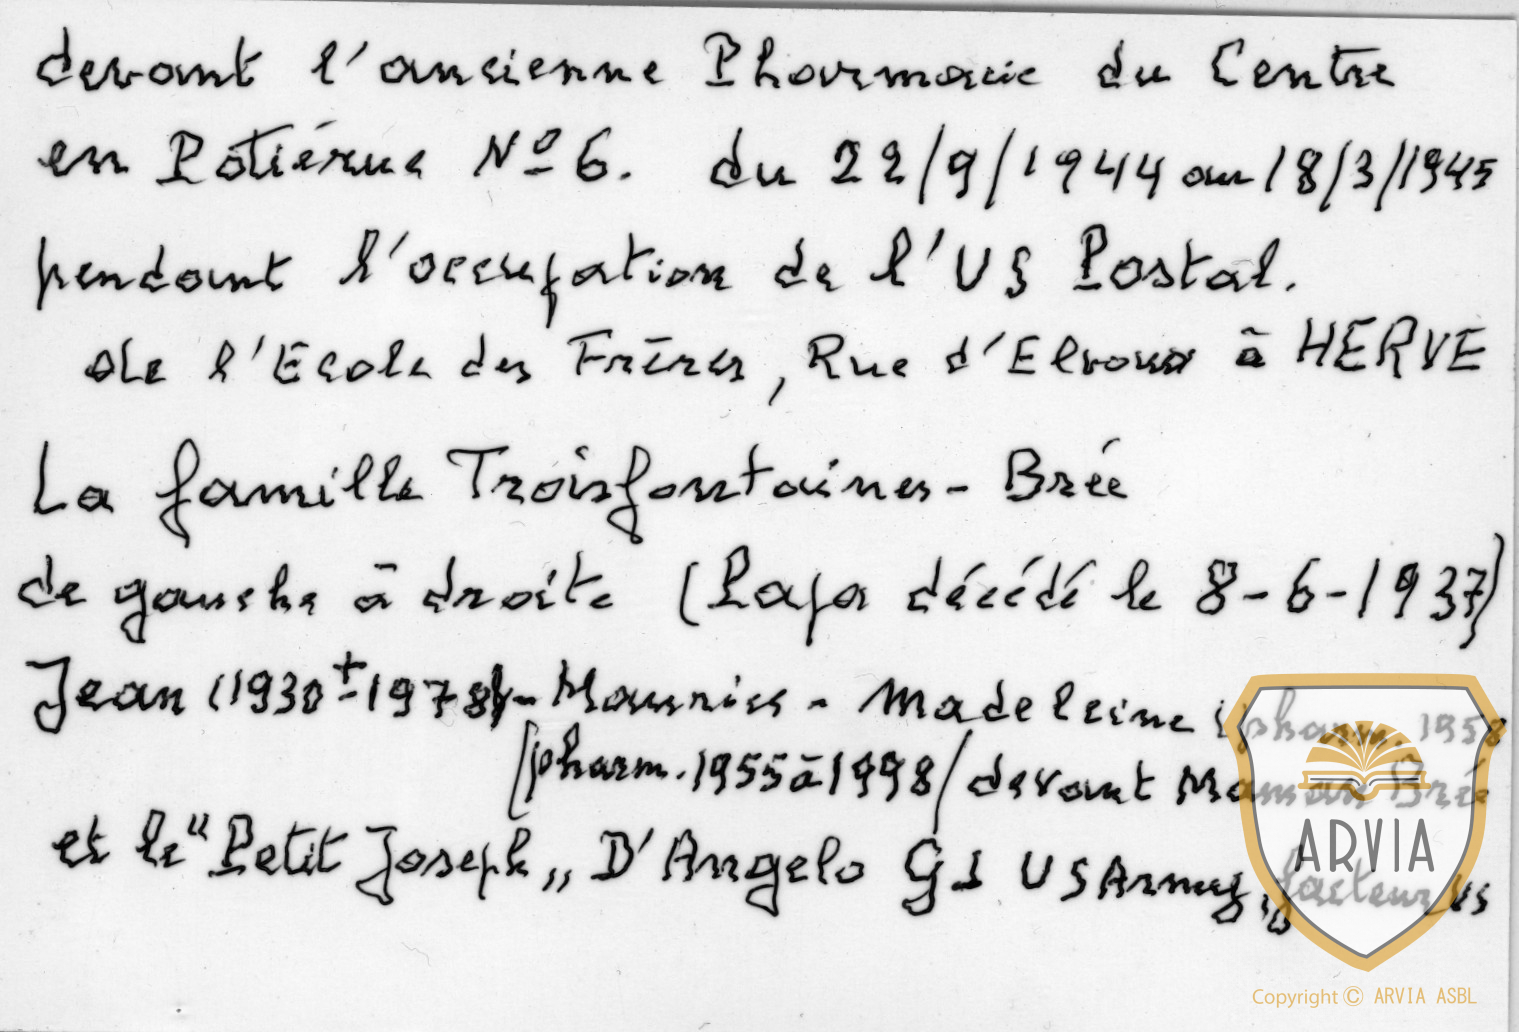 devant l'ancienne Pharmacie du Centre
en Potiérue Nº 6. du 22/9/1944 au 18/3/1945
pendant l'occupation de l'US Postal.
de l'Ecole des Frères, Rue d'Elvaux à HERVE
La famille Troisfontaines - Brée
de gauche à droite (Papa décédé le 8-6-1937)
Jean (1930 ± 1978) - Maurice - Madeleine (pharm. 1958
(pharm. 1955 à 1998) devant Maman Brée
et le "Petit Joseph" D'Angelo GI US Army, facteur US
ARVIA
Copyright © ARVIA ASBL